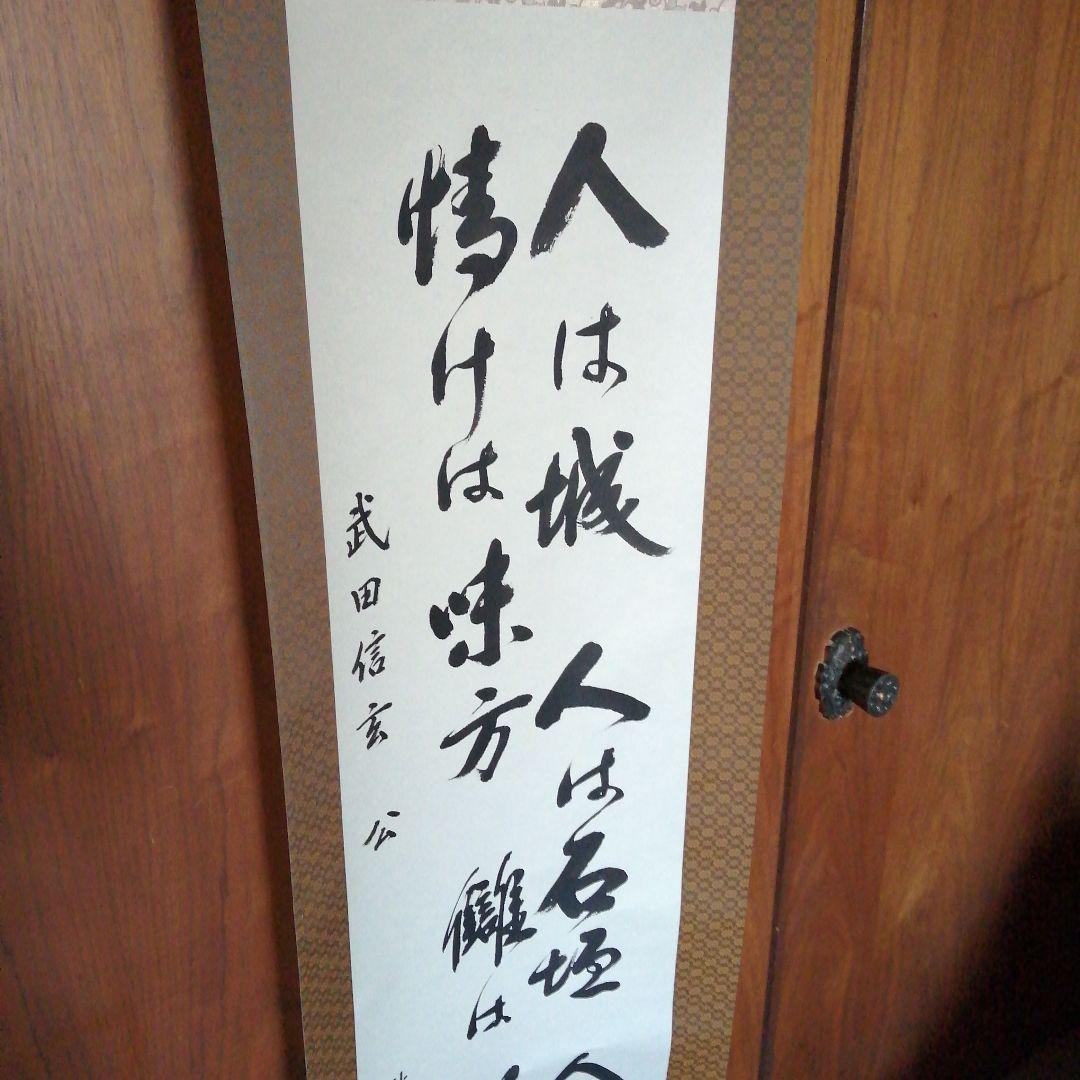 人は城 人は石垣 人
情けは味方 讎は
武田信玄 公